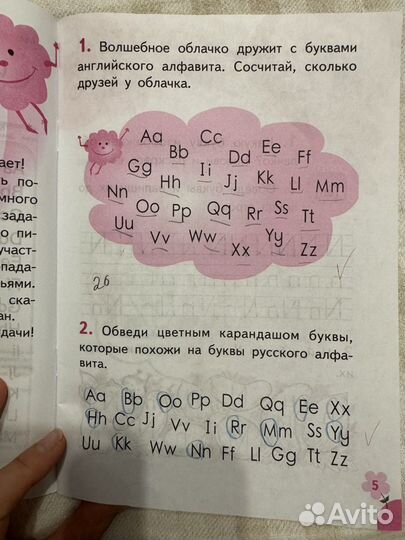 1. Волшебное облачко дружит с буквами
английского алфавита. Сосчитай, сколько
друзей у облачка.
Aa Bb Cc Dd Ee Ff
Gg Hh Ii Jj Kk Ll Mm
Nn Oo Pp Qq Rr Ss Tt
Uu Vv Ww Xx Yy Zz
26
2. Обведи цветным карандашом буквы,
которые похожи на буквы русского алфа-
вита.
Aa Bb Oo Pp Dd Qq Ee Xx
Hh Cc Jj Vv Ii Rr Mm Ss Yy
Uu Kk Ww Nn Ff Ll Gg Tt Zz
5
ает!
ь по-
много
зада-
о пи-
участ-
опада-
ьями.
и ска-
ан.
дачи!
Avito